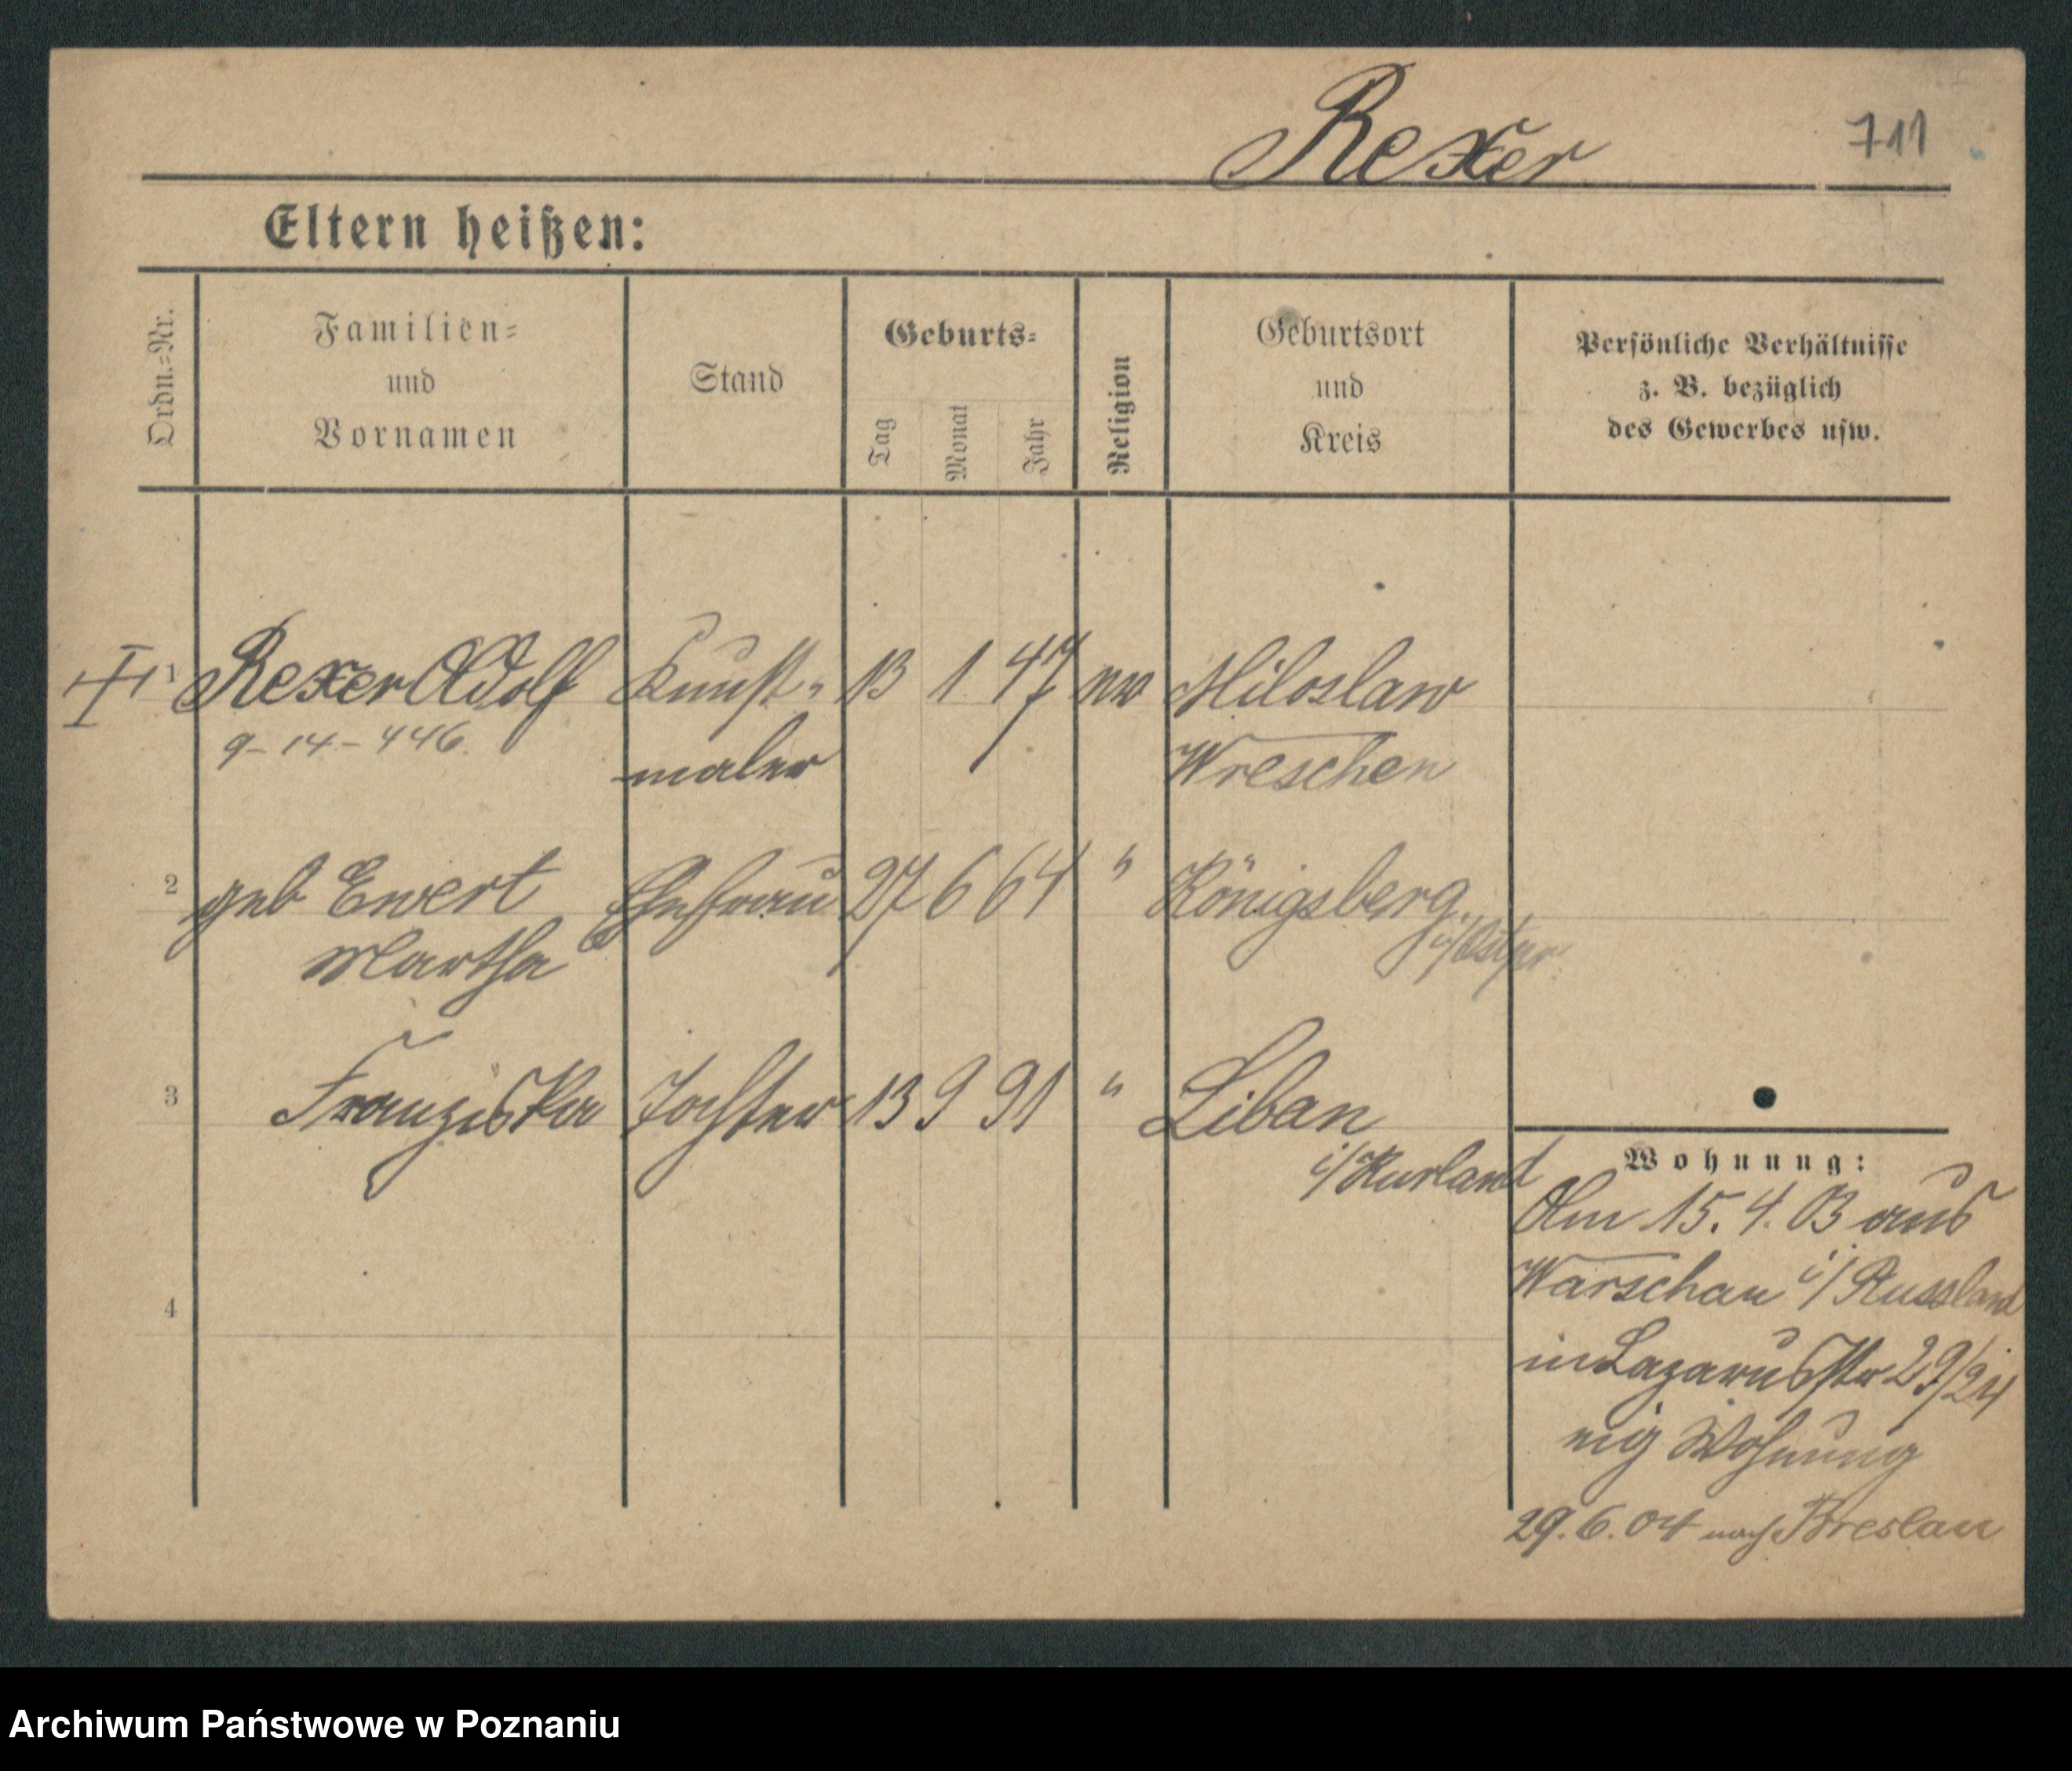 Rexer 711
Eltern heißen:
Ordn.=Nr.
Familien=
und
Vornamen
Stand
Geburts=
Tag
Monat
Jahr
Religion
Geburtsort
und
Kreis
Persönliche Verhältnisse
z. B. bezüglich
des Gewerbes usw.
1 Rexer Adolf Kunst= 13 1 47 Miloslaw
9-14-446. maler Wreschen
2 geb Ewert Ehefrau 27 6 64 " Königsberg
Martha i/Ostpr.
3 Franziska Tochter 13 9 91 " Libau
i/Kurland
4
Wohnung:
Am 15.4.03 aus
Warschau i/Russland
in Lazarusstr 29/24
eig Wohnung
29.6.04 nach Breslau
Archiwum Państwowe w Poznaniu